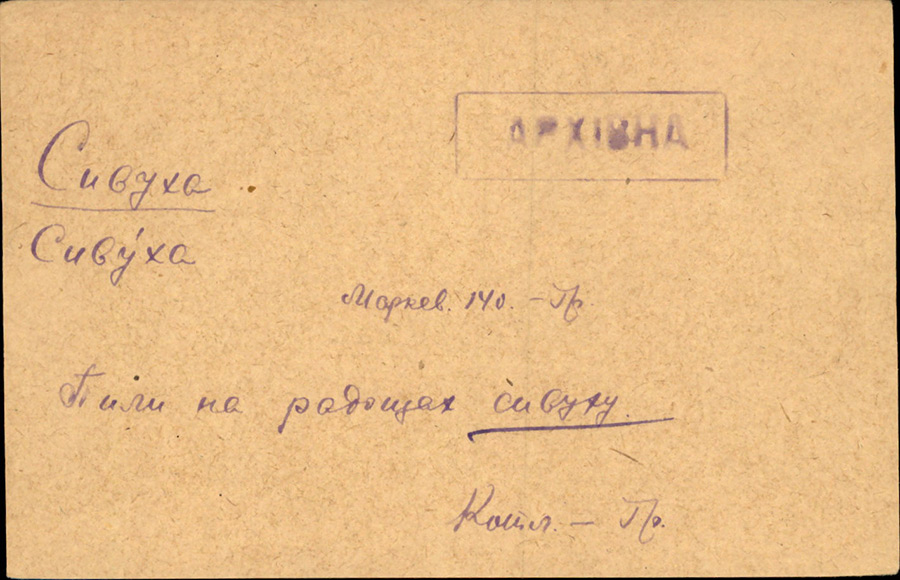 АРХІВНА
Сивуха
Сиву́ха
Маркев. 140. – Гр.
Пили на радощах сивуху.
Котл. – Гр.